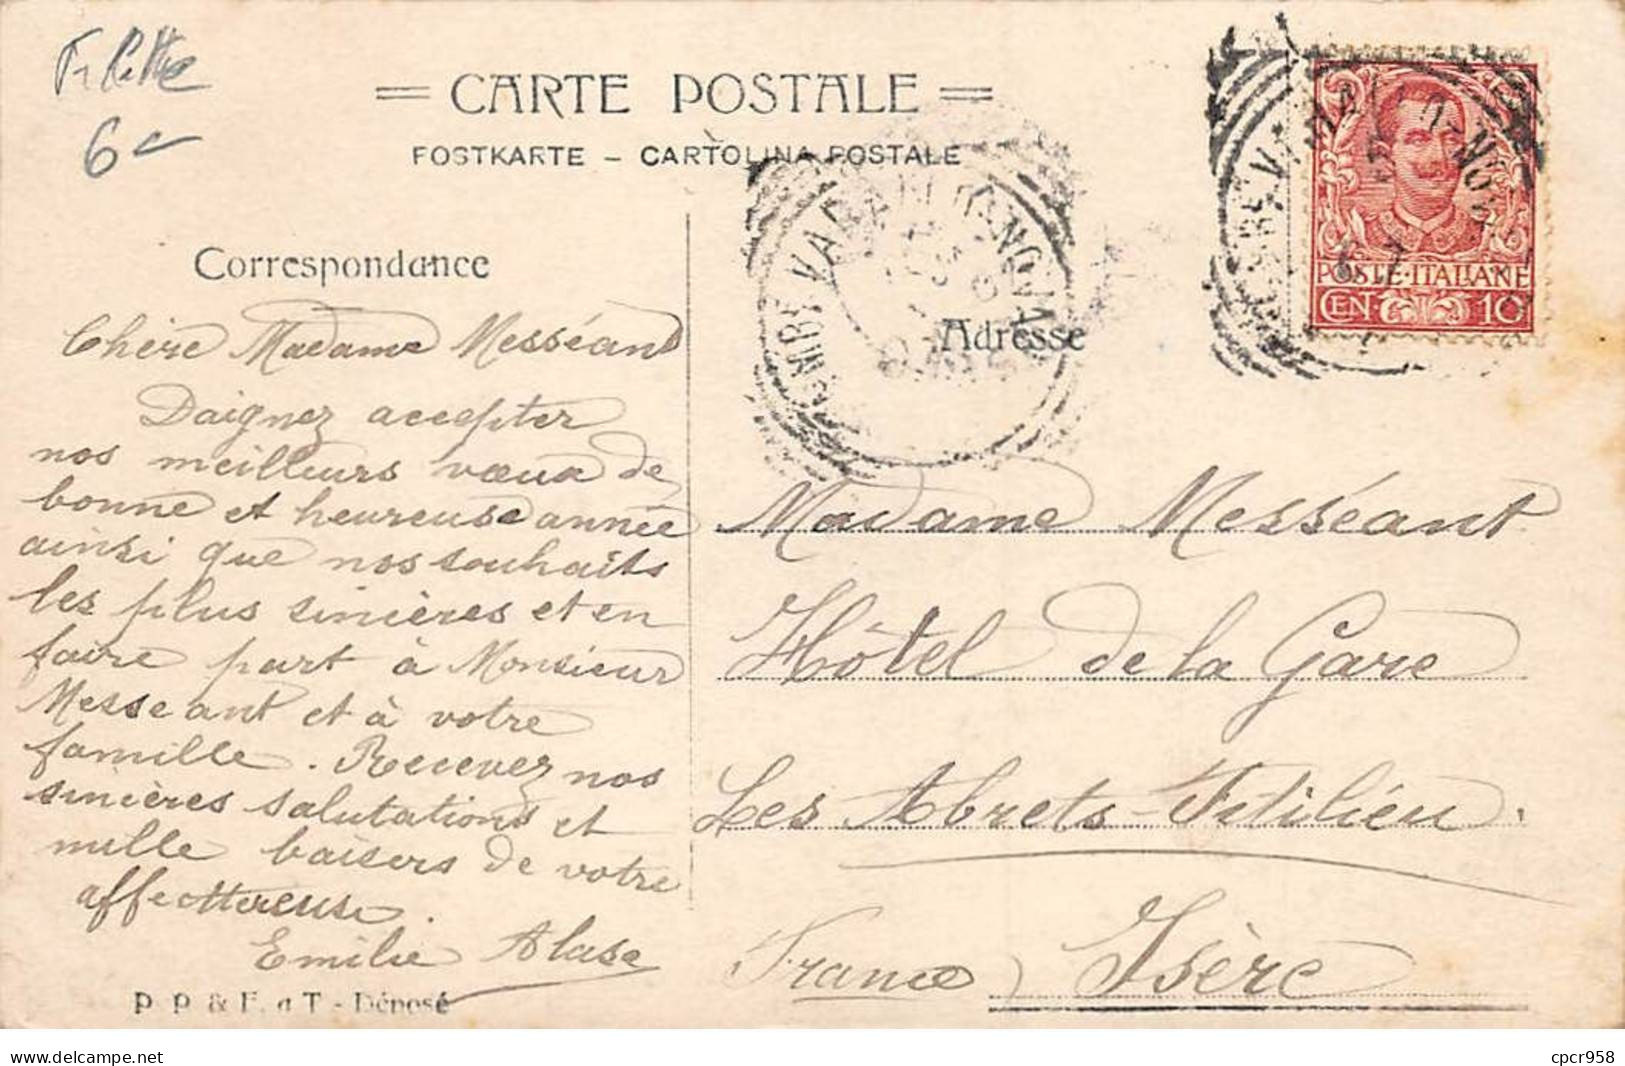 6
CARTE POSTALE
POSTKARTE – CARTOLINA POSTALE
POSTE·ITALIANE
CEN 10
Correspondance
Adresse
Chère Madame Messéant
Daignez accepter
nos meilleurs vœux de
bonne et heureuse année
ainsi que nos souhaits
les plus sincères et en
faire part à Monsieur
Messeant et à votre
famille. Recevez nos
sincères salutations et
mille baisers de votre
affecttueuse.
Emilie Alase
Madame Messéant
Hôtel de la Gare
Les Abrets-Fitilieu.
France Isère
P. P. & E. a T - Déposé
cpcr958